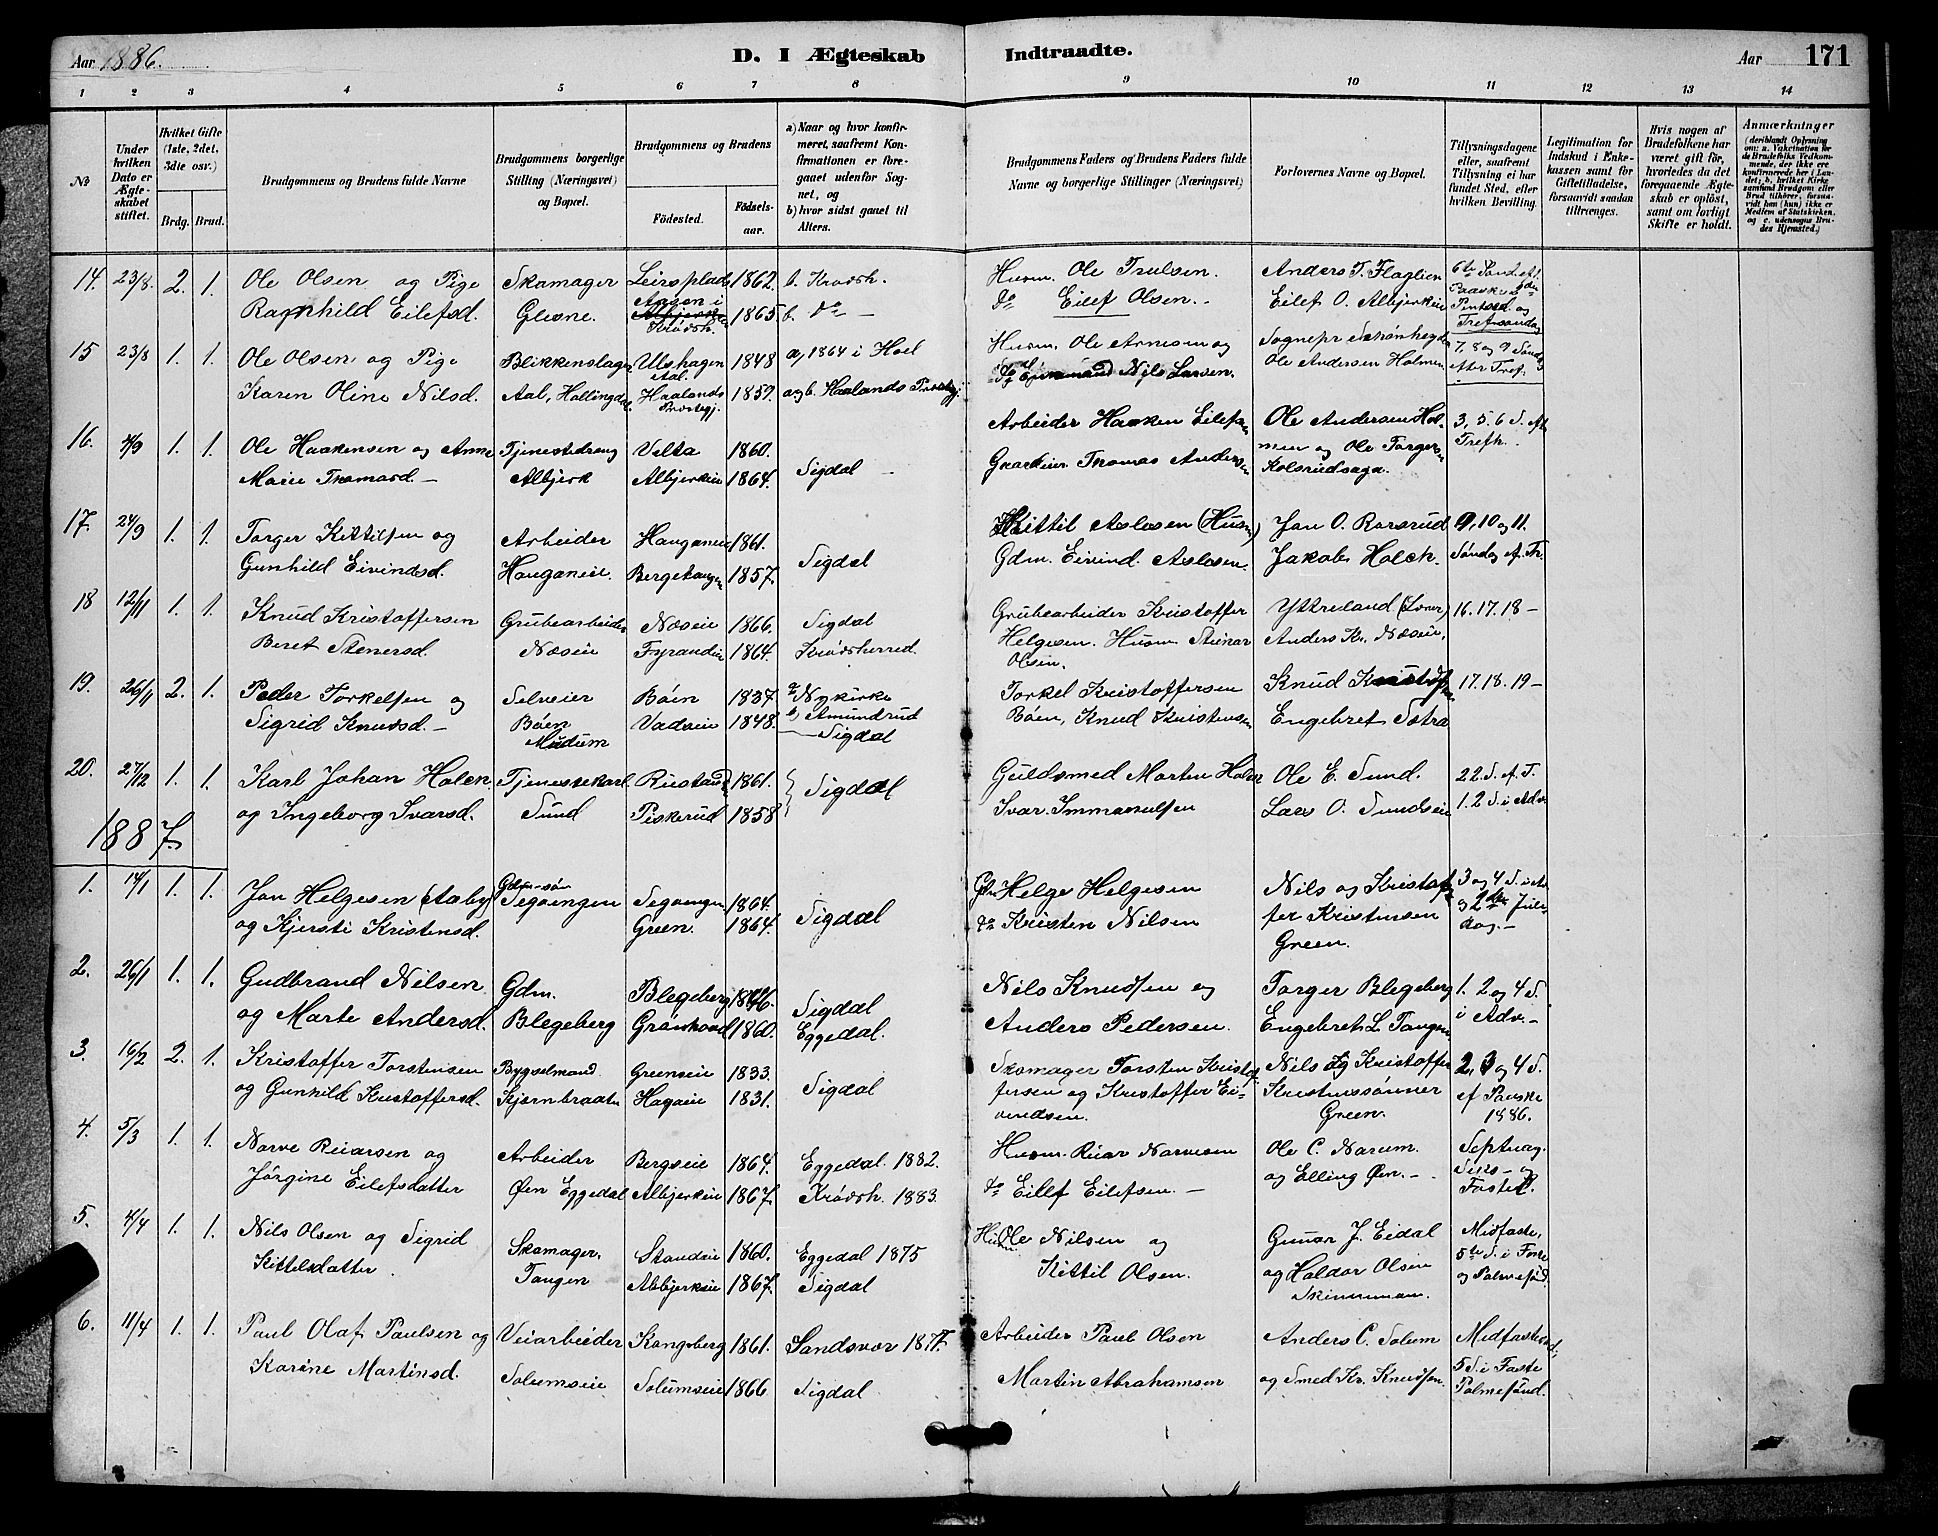 Aar 1886.
D. I Ægteskab Indtraadte.
Aar 171
1 2 3 4 5 6 7 8 9 10 11 12 13 14
No
Under hvilken Dato er Ægteskabet stiftet.
Hvilket Gifte (1ste, 2det, 3die osv.)
Brdg. Brud.
Brudgommens og Brudens fulde Navne
Brudgommens borgerlige Stilling (Næringsvei) og Bopæl.
Brudgommens og Brudens
Fødested. Fødselsaar.
a) Naar og hvor konfirmeret, saafremt Konfirmationen er foregaaet udenfor Sognet, og
b) hvor sidst gaaet til Alters.
Brudgommens Faders og Brudens Faders fulde Navne og borgerlige Stillinger (Næringsvei)
Forlovernes Navne og Bopæl.
Tillysningsdagene eller, saafremt Tillysning ei har fundet Sted, efter hvilken Bevilling.
Legitimation for Indskud i Enkekassen samt for Giftetilladelse, forsaavidt saadan tiltrænges.
Hvis nogen af Brudefolkene har været gift før, hvorledes da det foregaaende Ægteskab er opløst, samt om lovligt Skifte er holdt.
Anmærkninger
14. 23/8. 2. 1. Ole Olsen og Pige Skomager Leirsplads 1862. b. Krødsh. Husm. Ole Trulsen. Anders T. Flaglien 6te Sønd. eft.
Ragnhild Eilefsd. Glesne. Albjerk Krødsh. 1865. b. do - do Eilef Olsen. Eilef O. Albjerkeie Paaske
Pintsed. og
Trefsøndag
15 23/8 1. 1. Ole Olsen og Pige Blikkenslager Ulshagen Aal. 1848 a, 1864 i Hoel Husm. Ole Arnesen og Sognepr Schønheyder 7, 8 og 9 Sønd
Karen Oline Nilsd. Aal, Hallingdal Haalands Præstegj. 1859. a og b. Haalands Præstegj. Nils Larsen. Ole Andersen Holmen efter Tref.
16. 4/9 1. 1. Ole Haakensen og Anne Tjenestedreng Velta 1860. Arbeider Haaken Eilefsen Ole Andersen Hol- 3, 5. 6 S. eft
Marie Thomasd. Albjerk Albjerkeie 1864. Sigdal Thomas Andersen men og Ole Torgersen Trefh.
Kolsrudsaga.
17. 24/9 1. 1. Torger Kittilsen og Arbeider Hauganeie 1861. Kittil Aslesen (Husm) Jon O. Rorsrud 9, 10 og 11.
Gunhild Eivindsd. Hauganeie. Bergehaugen 1857. Sigdal Gdm. Eivind Aslesen. Jakob Holch. Søndag ef. Tr.
18 12/11 1. 1. Knud Kristoffersen Grubearbeider Næseie 1866. Sigdal Grubearbeider Kristoffer Ytreland (Lærer) 16. 17. 18 -
Beret Stenersd. Næseie Fyrandeie 1864. Krødsherred. Helgesen. Husm Steinar Anders Kr. Næseie.
Olsen.
19. 26/11 2. 1. Peder Torkelsen og Selveier Bøen 1837. a, Nykirke Torkel Kristoffersen Knud Kristofs 17. 18. 19 -
Sigrid Knudsd. - Bøen Modum Vadseie 1848. b, Amundrud Sigdal Bøen, Knud Kristensen Engebret Sætra
20. 27/12 1. 1. Karl Johan Holen Tjenestekarl Rustand 1861. Sigdal Guldsmed Morten Holen Ole E. Sund. 22. S. ef. T.
og Ingeborg Ivarsd. Sund Piskerud 1858 Ivar Immanuelsen Lars O. Sundseie 1. 2 S. i Adv.
1887.
1. 14/1 1. 1. Jon Helgesen (Aaby) Gdm-søn Tegoingen Tegoingen 1864. Sigdal Gdm Helge Helgesen Nils og Kristof- 3 og 4 S. i Av
og Kjersti Kristensd. Green. 1864. do Kristen Nilsen fer Kristensen og 2den Jule-
Green. dag. -
2. 26/1 1. 1. Gudbrand Nilsen Gdm. Blegeberg 1846. Sigdal Nils Knudsen og Torger Blegeberg 1. 2 og 4 S.
og Marte Andersd. Blegeberg Grønhovd 1860. Eggedal. Anders Pedersen. Engebret L. Tangen i Adv. -
3. 16/2 2. 1. Kristoffer Torstensen Bygselmand Greenseie 1833. Sigdal Skomager Torsten Kristof- Nils og Kristoffer 2, 3 og 4 S.
og Gunhild Kristoffersd. Kjørnbraaten Hagaeie 1831. fersen og Kristoffer Ei- Kristenssønner ef Paaske
vindsen. Green. 1886.
4. 5/3 1. 1. Narve Reiarsen og Arbeider Bergseie 1864. Eggedal 1882. Husm. Reiar Narvesen Ole C. Narum. Septuag.
Jørgine Eilefsdatter Øen Eggedal Albjerkeie 1867. Krødsh. 1883. do Eilef Eilefsen. - og Elling Øen. - Seks- og
Fastel.
5. 4/4 1. 1. Nils Olsen og Sigrid Skomager. Standeie 1860. Eggedal 1875 Husm Ole Nilsen og Gunar J. Eidal Midfaste,
Kittelsdatter. Tangen Albjerkeie 1867. Sigdal Kittil Olsen. og Haldor Olsen 5te S. i Faste
Skinnesmoen. og Palmesønd.
6. 11/4 1. 1. Paul Olaf Paulsen og Veiarbeider Kongsberg 1861. Sandsvær 1877. Arbeider Paul Olsen Anders C. Solum Midfastesønd.,
Karine Martinsd. Solumseie Solumseie 1866 Sigdal Martin Abrahamsen og Smed Kr. Knudsen 5 S. i Faste
Palmesønd.